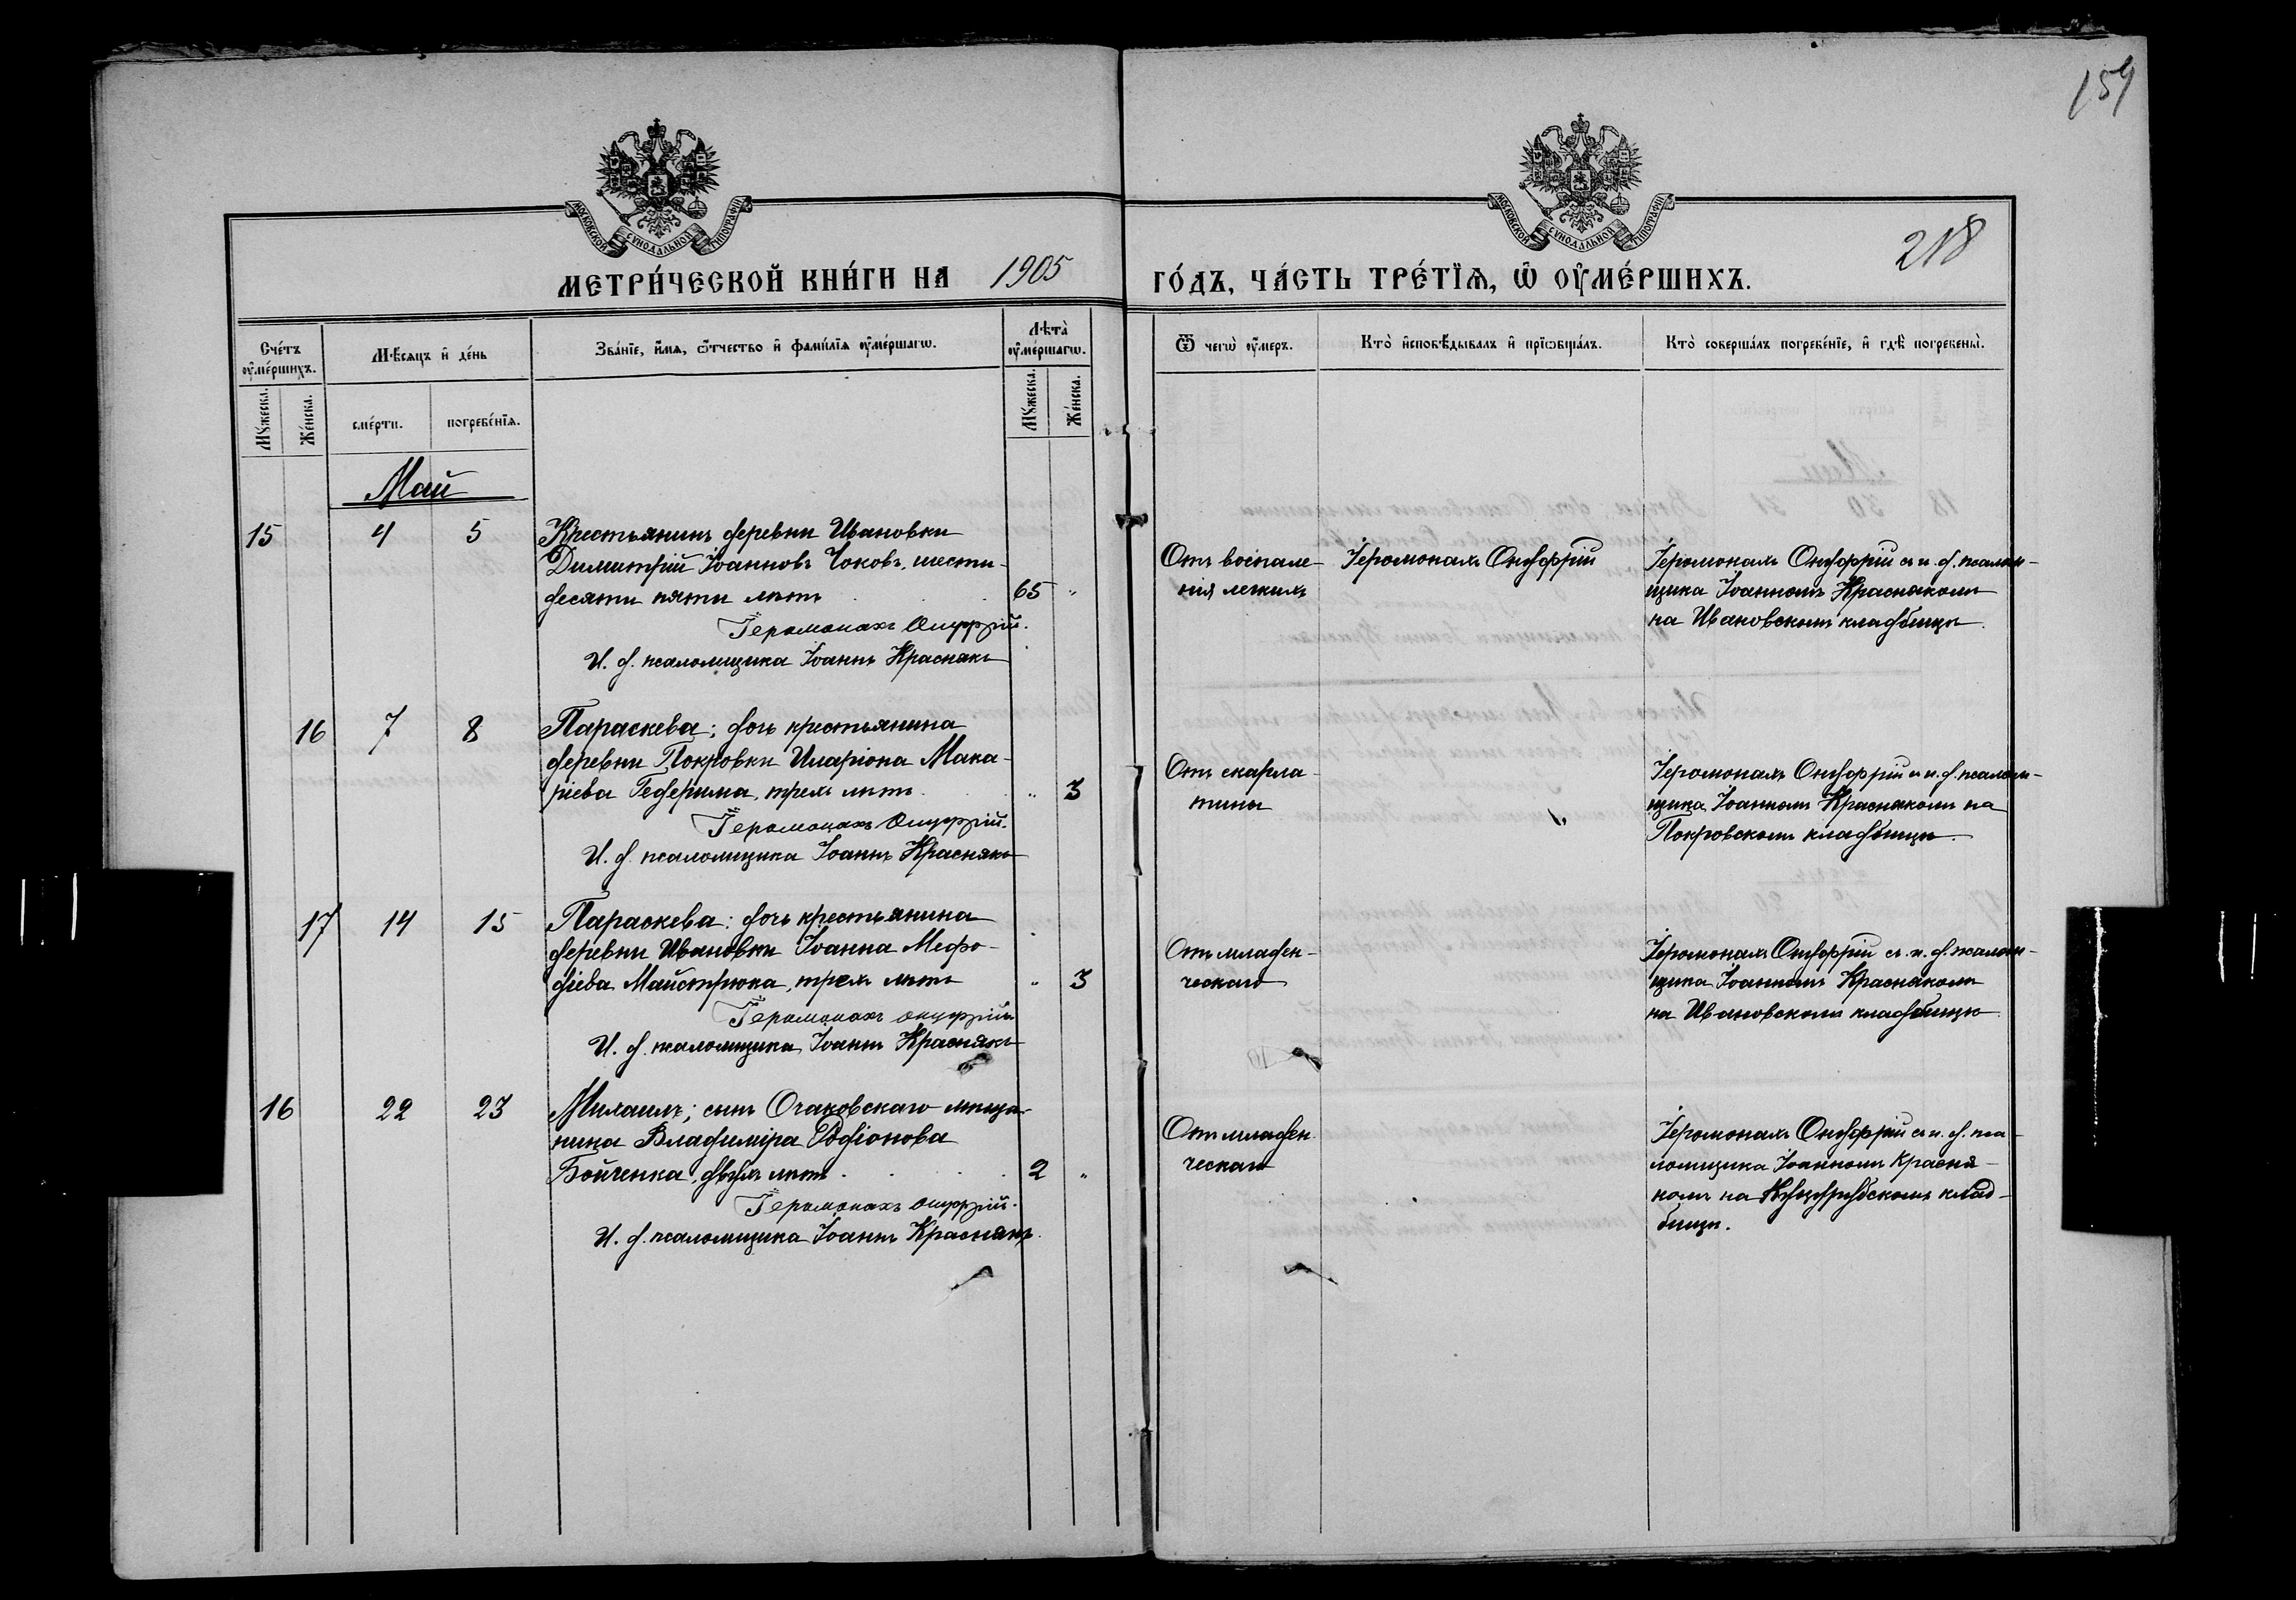 159
МОСКОВСКОЙ СУНОДАЛЬНОЙ ТИПОГРАФІИ
МОСКОВСКОЙ СУНОДАЛЬНОЙ ТИПОГРАФІИ
218
МЕТРИ́ЧЕСКОЙ КНИ́ГИ НА 1905 ГО́ДЪ, ЧА́СТЬ ТРЕ́ТЇѦ, Ѡ҆ ОУ҆МЕ́РШИХЪ.
Сче́тъ оу҆ме́ршихъ.
Мѣ́сяцъ и҆ де́нь
Зва́нїе, и҆́мя, ѻ҆́тчество и҆ фами́лїя оу҆ме́ршагѡ.
Лѣта̀ оу҆ме́ршагѡ.
Ѿ чегѡ̀ оу҆́меръ.
Кто̀ и҆сповѣ́дывалъ и҆ прїѡбща́лъ.
Кто̀ соверша́лъ погребе́нїе, и҆ гдѣ̀ погребены̀.
Мꙋ́жеска.
Же́нска.
сме́рти.
погребе́нїя.
Мꙋ́жеска.
Же́нска.
Май
15 4 5 Крестьянинъ деревни Ивановки
Димитрій Іоанновъ Чоковъ, шести-
десяти пяти лѣтъ 65 "
Іеромонахъ Онуфрій.
И. д. псаломщика Іоаннъ Краснякъ
Отъ воспале-
нія легкихъ
Іеромонахъ Онуфрій
Іеромонахъ Онуфрій съ и. д. псалом-
щика Іоанномъ Краснякомъ
на Ивановскомъ кладбищѣ.
16 7 8 Параскева; дочь крестьянина
деревни Покровки Иларіона Мака-
ріева Гедерима, трехъ лѣтъ " 3
Іеромонахъ Онуфрій.
И. д. псаломщика Іоаннъ Краснякъ
Отъ скарла-
тины
Іеромонахъ Онуфрій съ и. д. псалом-
щика Іоанномъ Краснякомъ на
Покровскомъ кладбищѣ.
17 14 15 Параскева; дочь крестьянина
деревни Ивановки Іоанна Мефо-
діева Майстрюка, трехъ лѣтъ " 3
Іеромонахъ Онуфрій
И. д. псаломщика Іоаннъ Краснякъ
Отъ младен-
ческаго
Іеромонахъ Онуфрій съ и. д. псалом-
щика Іоанномъ Краснякомъ
на Ивановскомъ кладбищѣ
16 22 23 Михаилъ; сынъ Очаковскаго мѣща-
нина Владиміра Родіонова
Бойченка, двухъ лѣтъ 2 "
Іеромонахъ Онуфрій.
И. д. псаломщика Іоаннъ Краснякъ.
Отъ младен
ческаго
Іеромонахъ Онуфрій съ и. д. пса-
ломщика Іоанномъ Красня-
комъ на клад-
бищѣ.